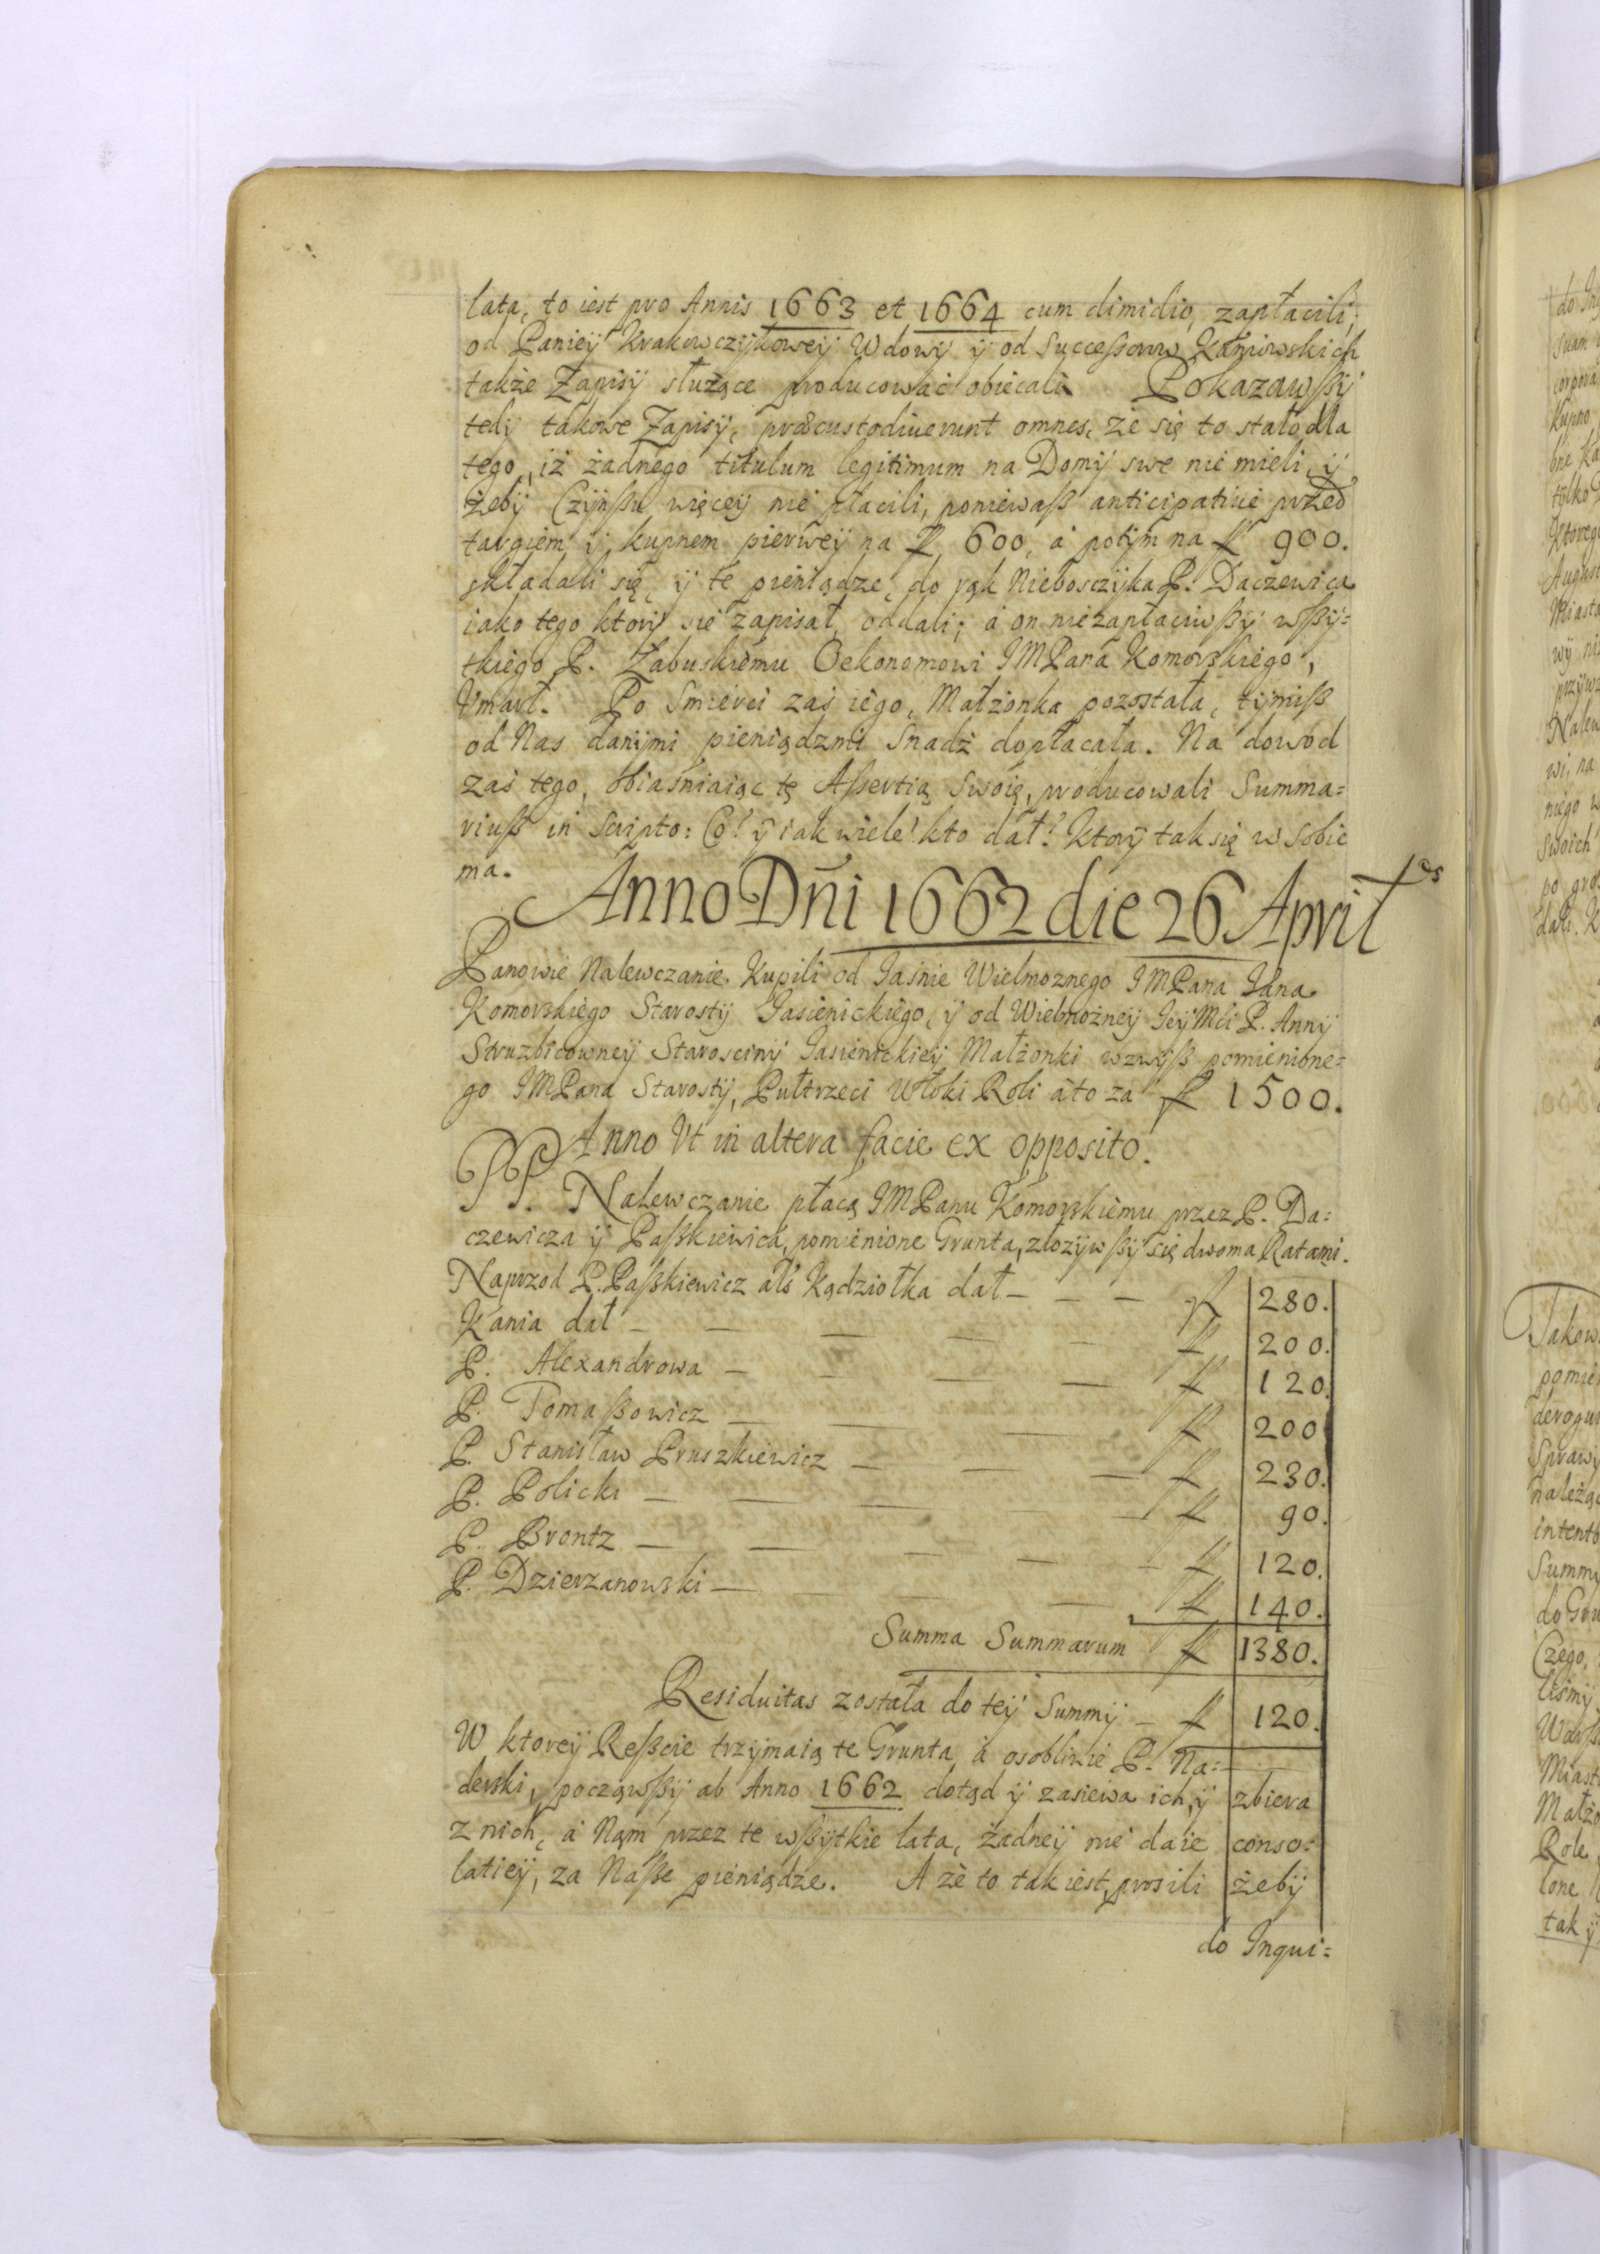 lata, to iest pro Annis 1663 et 1664 cum dimidio, zapłacili,
od Panieÿ Krakowczÿkoweÿ Wdowÿ ÿ od Successorow Kaniowskich
także Zapisÿ służące producować obiecali Pokazawßÿ
tedÿ takowe Zapisÿ, præcustodiuerunt omnes, że się to stało dla
tego, iż żadnego titulum legitimum na Domÿ swe nie mieli, ÿ
żebÿ Czÿnßu więceÿ nie płacili, poniewaß anticipatiue przed
targiem ÿ kupnem pierweÿ na fl 600, a potÿm na fl 900.
składali się, ÿ te pieniądze, do rąk Nieboszczÿka P. Daczewica
iako tego ktorÿ się zapisał, oddali; a on niezapłaciwßÿ wßÿ=
tkiego P. Zabuskiemu Oekonomowi JMPana Komorskiego,
Vmarł. Po Smierci zaś iego, Małżonka pozostała, tÿmiß
od Nas danÿmi pieniądzmi Snadź dopłacała. Na dowod
zaś tego, obiaśniaiąc tę Aßertią Swoię, producowali Summa=
riuß in scripto: Co? ÿ iak wiele? kto dał? ktorÿ tak się w sobie
ma.
Anno Dñi 1662 die 26 Aprilˡᵉˢ
Panowie Nalewczanie Kupili od Jaśnie Wielmoznego JMPana Jana
Komorskiego Starostÿ Jasienickiego, ÿ od Wielmożneÿ JeÿMci P. Annÿ
Struzbicowneÿ Starościnÿ Jasienickieÿ Małżonki wzwÿß pomienione=
go JMPana Starostÿ, Pułtrzeci Włoki Roli a to za fl 1500.
Anno Vt in altera facie ex opposito.
PP. Nalewczanie płacą JMPanu Komorskiemu przez P. Da=
czewicza ÿ Paßkiewica, pomienione Grunta, złożÿwßÿ się dwoma Ratami.
Naprzod P. Paßkiewicz als Kądziołka dał — — — fl 280.
Kania dał — — — — — fl 200.
P. Alexandrowa — — — — fl 120.
P. Tomaßowicz — — — fl 200
P. Stanisław Pruszkiewicz — — — fl 230.
P. Policki — — — — fl 90.
P. Brontz — — — — fl 120.
P. Dzierzanowski — — — fl 140.
Summa Summarum fl 1380.
Residuitas została do teÿ Summÿ — fl 120.
W ktoreÿ Reßcie trzÿmaią te Grunta, a osobliwie P. Na=
derski, począwßÿ ab Anno 1662 dotąd ÿ zasiewa ich, ÿ zbiera
z nich, a Nam przez te wßÿtkie lata, żadneÿ nie daie conso=
latieÿ, za Naße pieniądze. A że to tak iest, prosili żebÿ
do Inqui=